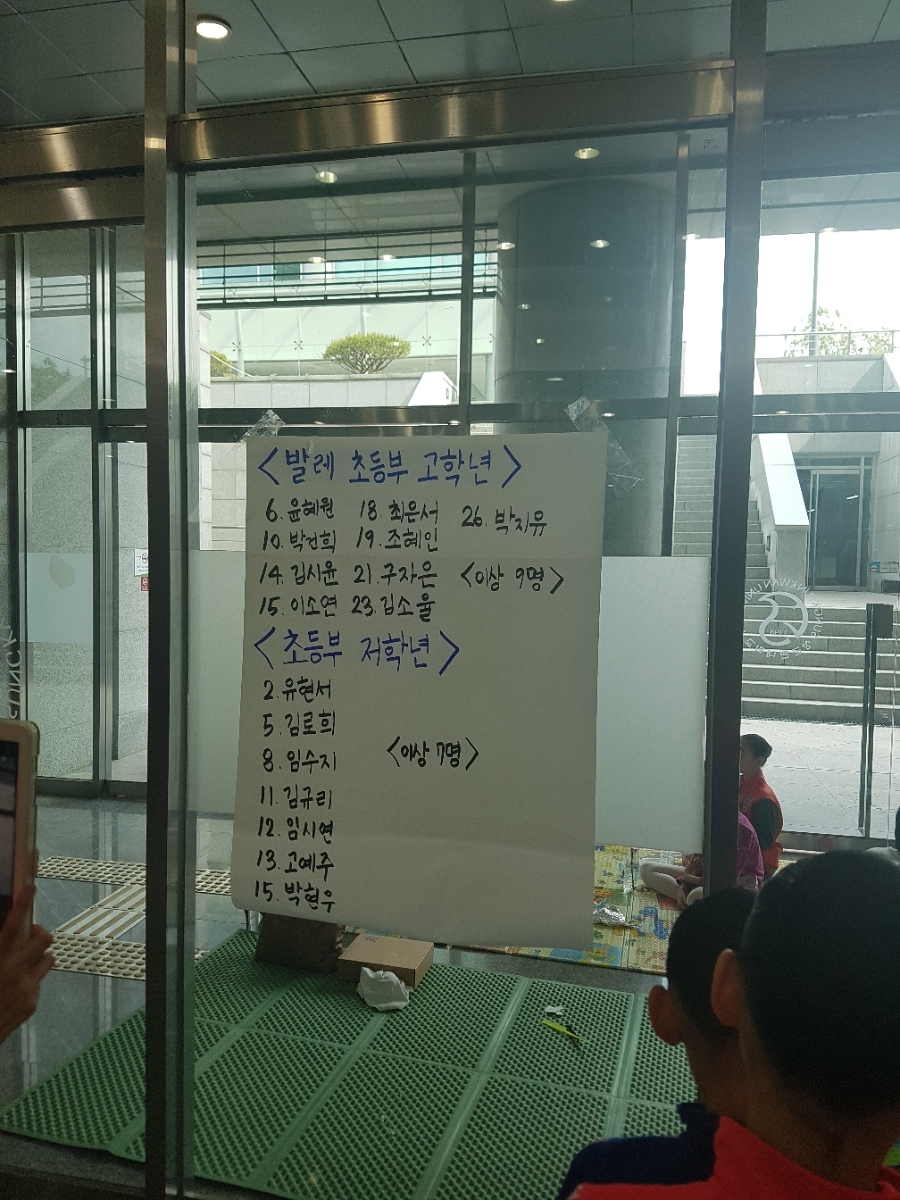 <발레 초등부 고학년>
6. 윤혜원 18. 최은서 26. 박지유
10. 박건희 19. 조혜인
14. 김시윤 21. 구자은 <이상 9명>
15. 이소연 23. 김소울
<초등부 저학년>
2. 유현서
5. 김로희
8. 임수지 <이상 7명>
11. 김규리
12. 임시연
13. 고예주
15. 박현우